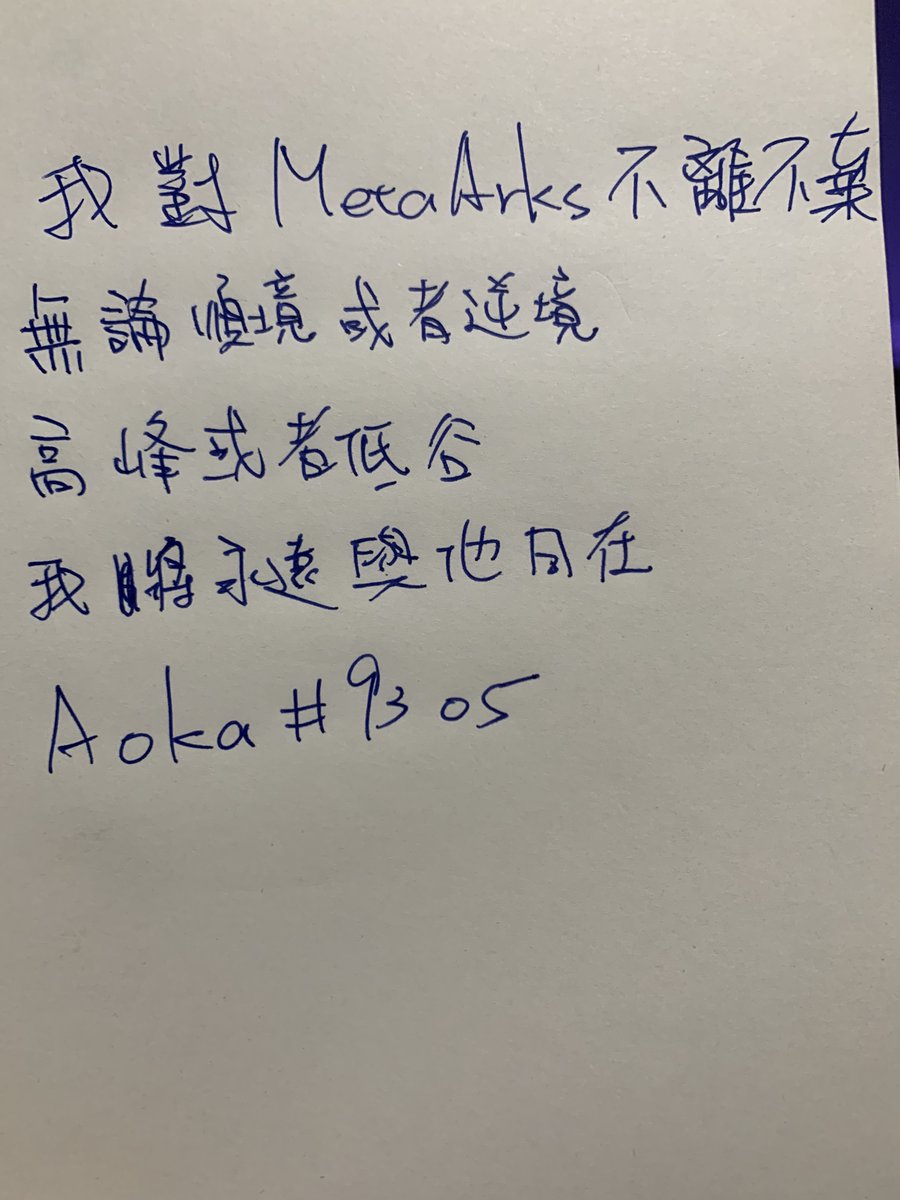 我對 MetaArks 不離不棄
無論順境或者逆境
高峰或者低谷
我將永遠與他同在
Aoka #9305